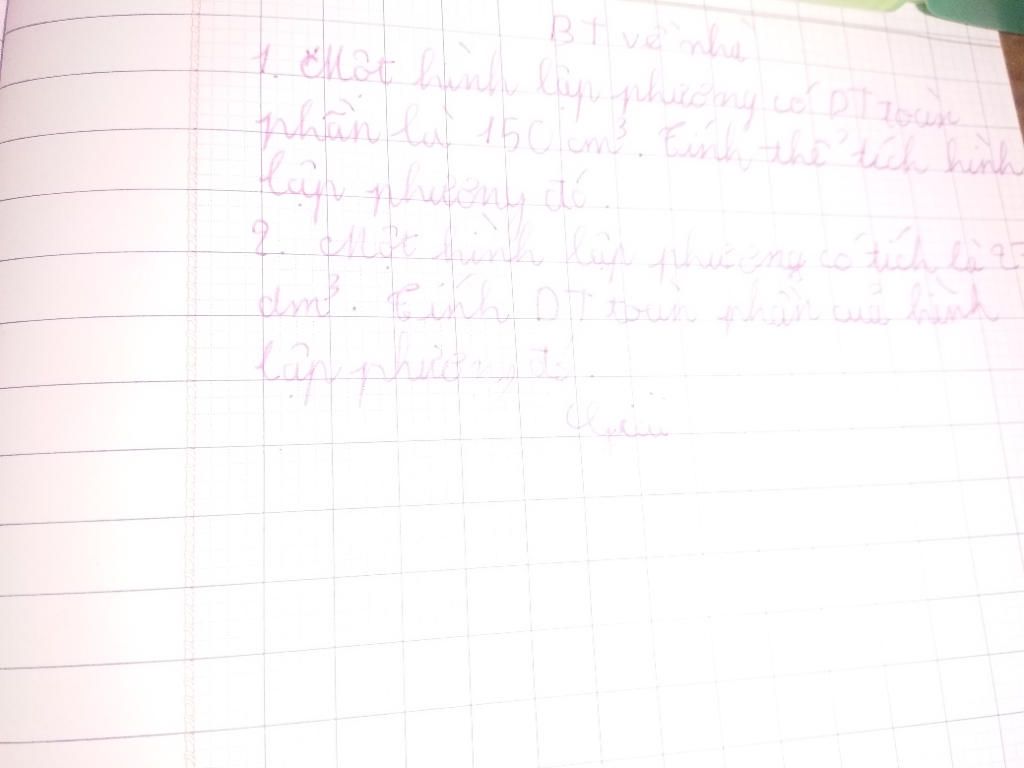 BT về nhà
1. Một hình lập phương có DT toàn
phần là 150 cm³. Tính thể tích hình
lập phương đó.
2. Một hình lập phương có tích là 27
dm³. Tính DT toàn phần của hình
lập phương đó.